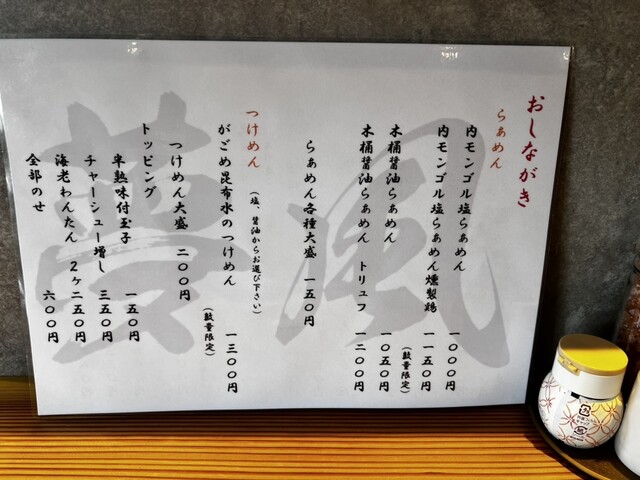 おしながき
らぁめん
内モンゴル塩らぁめん 一〇〇〇円
内モンゴル塩らぁめん燻製鶏 一一五〇円
(数量限定)
木桶醤油らぁめん 一〇五〇円
木桶醤油らぁめん トリュフ 一二〇〇円
らぁめん各種大盛 一五〇円
つけめん
(塩、醤油からお選び下さい)
がごめ昆布水のつけめん 一三〇〇円
(数量限定)
つけめん大盛 二〇〇円
トッピング
半熟味付玉子 一五〇円
チャーシュー増し 三五〇円
海老わんたん 2ヶ二五〇円
全部のせ 六〇〇円
夢風